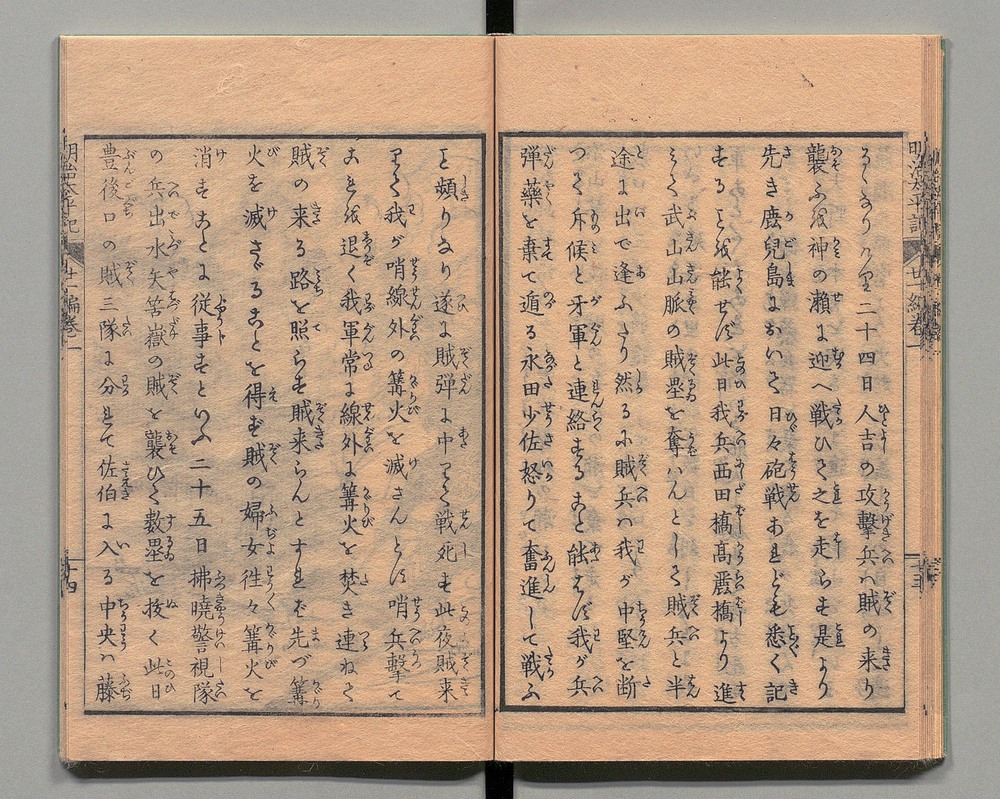 るゝなり 二十四日人吉の攻撃兵ハ賊の来り
襲ふを神の瀬に迎へ戦ひて之を走らす是より
先き鹿児島において日々砲戦あれども悉く記
することを能せず此日我兵西田橋高麗橋より進
みて武山山脈の賊塁を奪ハんとして賊兵と半
途に出で逢ふたり然るに賊兵ハ我が中堅を断
つて斥候と牙軍と連絡すること能はず我が兵
弾薬を棄て遁る永田少佐怒りて奮進して戦ふ
こと頗りなり遂に賊弾に中りて戦死す此夜賊来
りて我が哨線外の篝火を滅さんとす哨兵撃て
これを退く我軍常に線外に篝火を焚き連ねて
賊の来る路を照らす賊来らんとすれば先づ篝
火を滅さゞることを得ず賊の婦女往々篝火を
消すことに従事すといふ二十五日拂曉警視隊
の兵出水矢筈嶽の賊を襲ひて數塁を抜く此日
豊後口の賊三隊に分れて佐伯に入る中央ハ藤
明治太平記 廿一編巻之一
十四